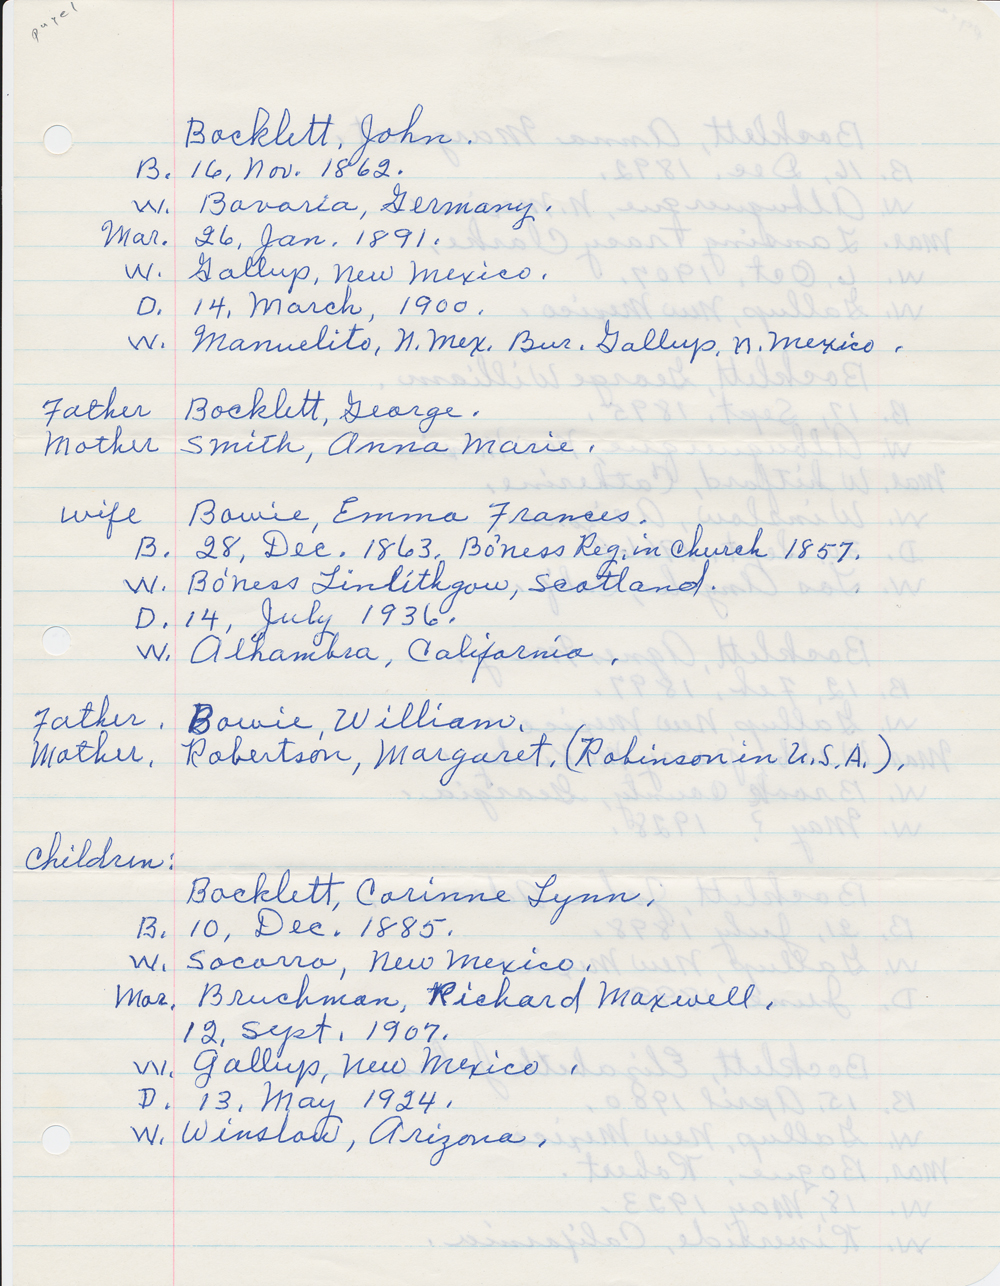 Bocklett, John.
B. 16, Nov. 1862.
W. Bavaria, Germany.
Mar. 26, Jan. 1891.
W. Gallup, New Mexico.
D. 14, March, 1900.
W. Manuelito, N. Mex. Bur. Gallup, N. Mexico.
Father Bocklett, George.
Mother Smith, Anna Marie.
Wife Bowie, Emma Frances.
B. 28, Dec. 1863. Bo'ness Reg. in Church 1857.
W. Bo'ness Linlithgow, Scotland.
D. 14, July 1936.
W. Alhambra, California.
Father. Bowie, William.
Mother. Robertson, Margaret. (Robinson in U.S.A.).
Children:
Bocklett, Corinne Lynn.
B. 10, Dec. 1885.
W. Socorro, New Mexico.
Mar. Bruchman, Richard Maxwell.
12, Sept. 1907.
W. Gallup, New Mexico.
D. 13, May 1924.
W. Winslow, Arizona.